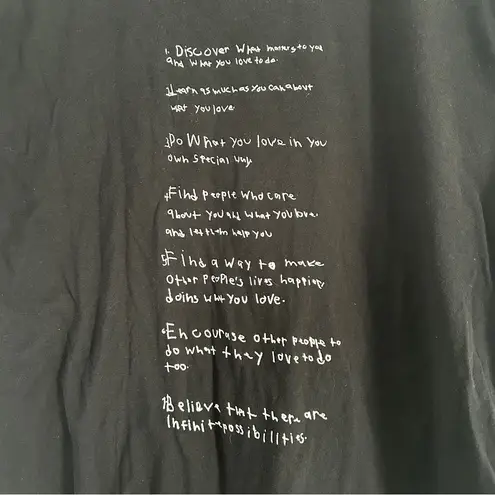 1. Discover What matters to you
and What you love to do.
2. Learn as much as you can about
what you love
3. Do What you love in you
own special way.
4. Find people who care
about you and what you love.
and let them help you
5. Find a way to make
Other people's lives happier
doing what you love.
6. Encourage other people to
do what they love to do
too.
7. Believe that there are
infinite possibilities.